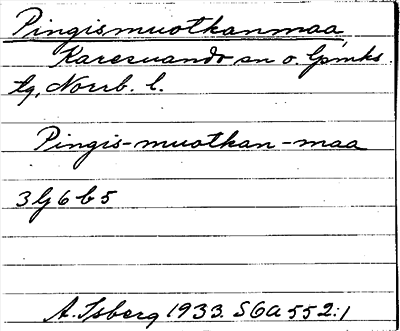 Pingismuotkanmaa,
Karesuando sn o. lpmks.
tg, Norrb. l.
Pingis-muotkan-maa
3 G 6 b 5
A. Isberg 1933. SGA 552:1